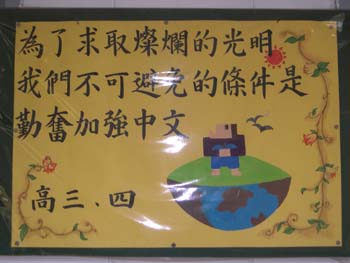 為了求取燦爛的光明
我們不可避免的條件是
勤奮加強中文
高三、四